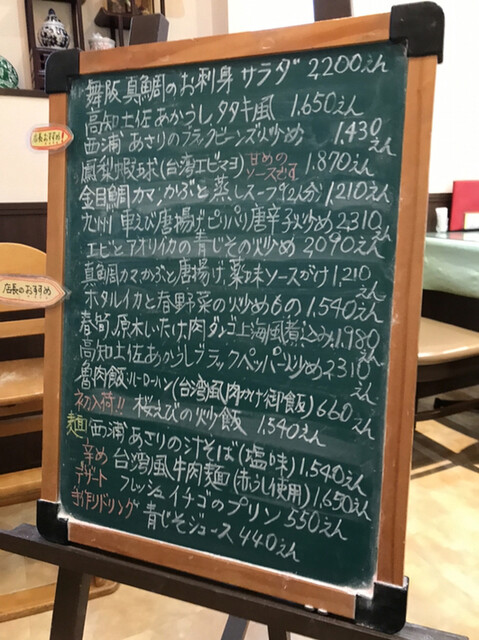 舞阪 真鯛のお刺身 サラダ 2200えん
高知土佐あかうし タタキ風 1.650えん
西浦 あさりのブラックビーンズ炒め 1,430えん
鳳梨蝦球(台湾エビマヨ) 甘めのソースです 1.870えん
金目鯛カマ、かぶと蒸しスープ(2人分) 1,210えん
九州 車えび唐揚げピリパリ唐辛子炒め 2,310えん
エビとアオリイカの青じその炒め 2,090えん
真鯛カマかぶと唐揚げ、薬味ソースがけ 1,210えん
ホタルイカと春野菜の炒めもの 1,540えん
春筍、原木しいたけ、肉ダンゴ上海風煮込み 1,980えん
高知土佐あかうしブラックペッパー炒め 2310えん
魯肉飯ルーローハン(台湾風肉かけ御飯) 660えん
初入荷!! 桜えびの炒飯 1,540えん
麺 西浦 あさりの汁そば(塩味) 1.540えん
辛め 台湾風牛肉麺(赤うし使用) 1,650えん
デザート フレッシュイチゴのプリン 550えん
手作りドリンク 青じそジュース 440えん
店長おすすめ
店長のおすすめ